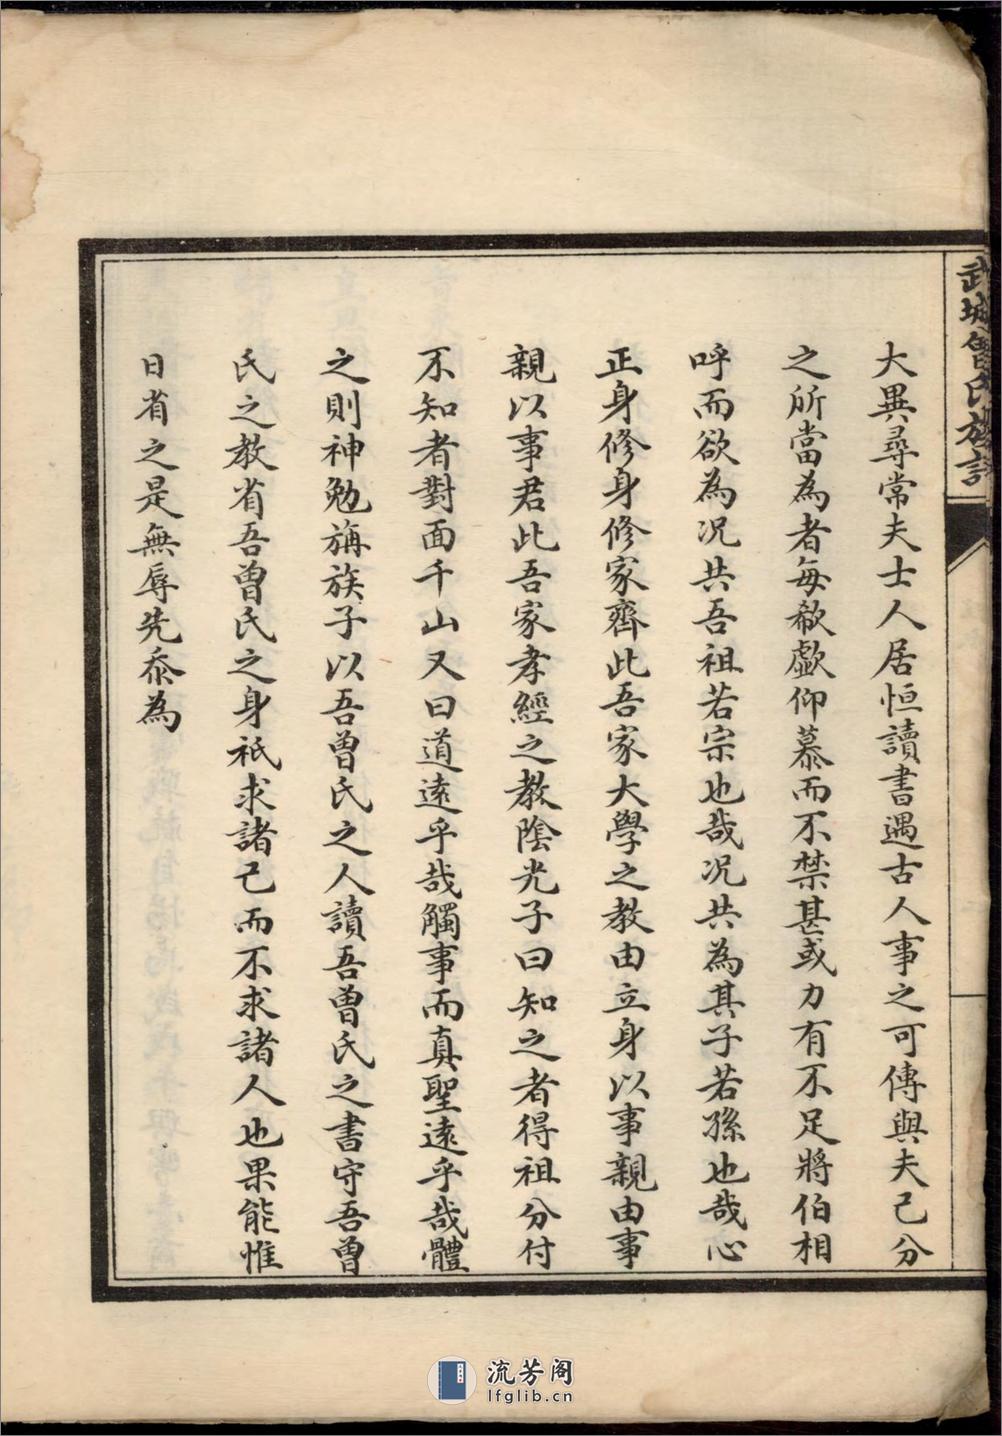 武城曾氏族譜
大異尋常夫士人居恒讀書遇古人事之可傳與夫己分
之所當為者每欷歔仰慕而不禁甚或力有不足將伯相
呼而欲為况共吾祖若宗也哉况共為其子若孫也哉心
正身修身修家齊此吾家大學之教由立身以事親由事
親以事君此吾家孝經之教陰光子曰知之者得祖分付
不知者對面千山又曰道遠乎哉觸事而真聖遠乎哉體
之則神勉旃族子以吾曾氏之人讀吾曾氏之書守吾曾
氏之教省吾曾氏之身祇求諸己而不求諸人也果能惟
日省之是無辱先忝為
流芳阁
lfglib.cn